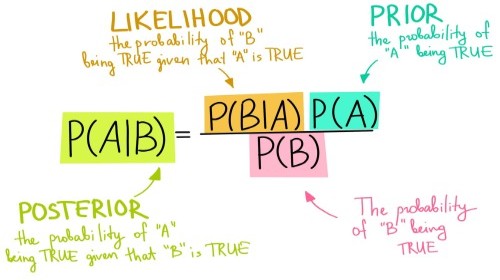 LIKELIHOOD
the probability of "B"
being TRUE given that "A" is TRUE
PRIOR
the probability
of "A" being TRUE
P(A|B) = P(B|A) P(A)
P(B)
POSTERIOR
the probability of "A"
being TRUE given that "B" is TRUE
The probability
of "B" being
TRUE